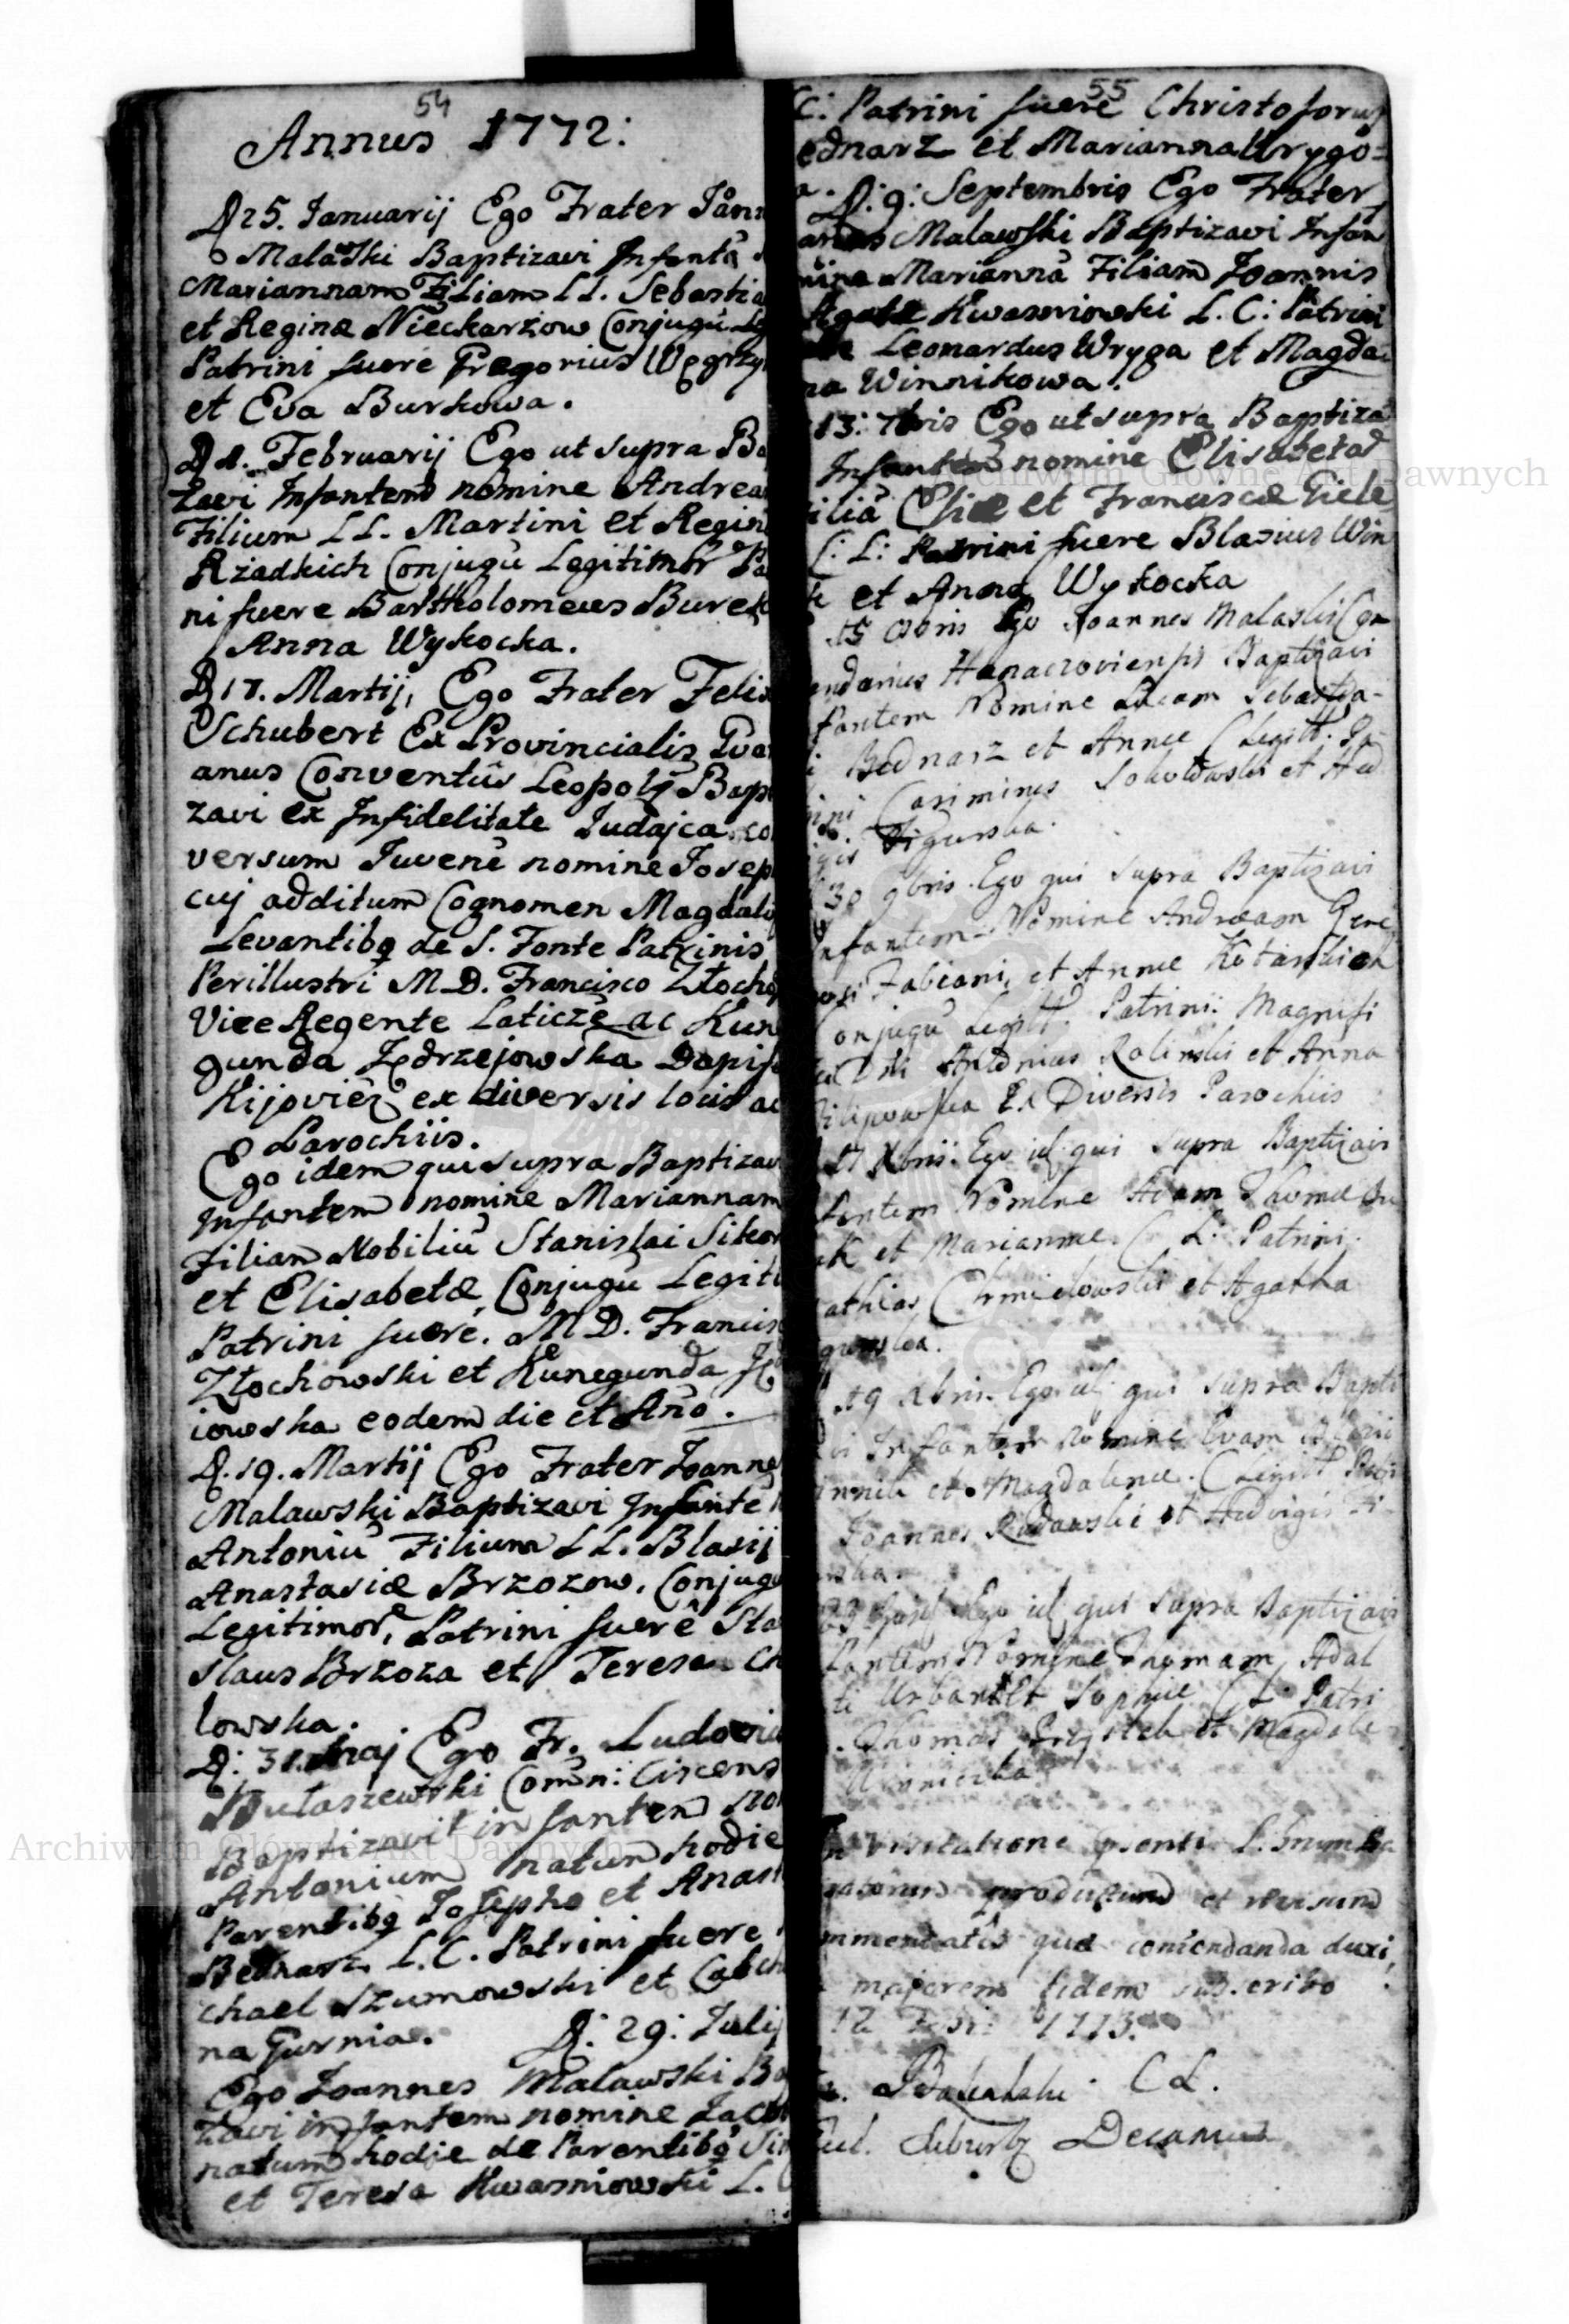 54
Annus 1772:
D 25. Ianuarij Ego Frater Ioann
Malawski Baptizavi Infantē
Mariannam Filiam LL. Sebastia
et Reginæ Nieckarzow Conjugū Leg
Patrini fuere Gregorius Węgrzy
et Eva Burkowa.
D Februarij Ego ut supra Ba
zavi Infantem nomine Andrea
Filium LL. Martini et Regin
Rzadkich Conjugū Legitimor Pa
ni fuere Bartholomeus Burek
Anna Wykocka.
D 17. Martij, Ego Frater Felix
Schubert Ex Provincialis Gva
anus Conventûs Leopolÿ Bap
zavi ex Infidelitate Iudajca co
versum Iuvenē nomine Iosep
cuj additum Cognomen Magdal
Levantibq de S. Fonte Patrinis
Perillustri M. D. Francisco Złocho
Vice Regente Laticzē ac Kun
gunda Jędrzejowska Dapif
Kijovieñ ex diversis locis ac
Parochiis.
Ego idem qui supra Baptizav
Infantem nomine Mariannam
Filiam Nobiliū Stanislai Sikor
et Elisabetæ, Conjugū Legiti
Patrini fuere. M D. Francis
Złochowski et Kunegunda Ję
iowska eodem die et Año.
D. 19. Martij Ego Frater Ioanne
Malawski Baptizavi Infantē
Antoniū Filium LL. Blasij
Anastasiæ Brzozow. Conjugu
Legitimor, Patrini fuerê Sta
slaus Brzoza et Teresa Ch
lowska.
D: 31. Maj Ego Fr. Ludovic
Butaszewski Comñ: Ciscens
Baptizavit infantem no
Antonium natum hodie
Parentibq Iosepho et Anas
Bednarz L. C. Patrini fuere
chael Szumowski et Cath
na Gurnia. D: 29: Iulij
Ego Ioannes Malawski Ba
zavi infantem nomine Iacob
natum hodie de Parentibq Si
et Teresa Kwasniowski L.
55
C: Patrini fuere Christoforus
ednarz et Marianna Wrygo=
a. D: 9: Septembris Ego Frater
annes Malawski Baptizavi Infan
mine Mariannā Filiam Joannis
Agatæ Kwasniowski L. C: Patrini
Leonardus Wryga et Magda=
na Winnikowa.
13: 7bris Ego ut supra Baptiza
Infantem nomine Elisabetad
ilia Eliæ et Franciscæ Ziele
C: L: Patrini fuere Blasius Win
k et Anna Wykocka
15 Ego Joannes Malaski Com
endarius Hanaczoviensis Baptizavi
fantem Nomine Lucam Sebastia-
i Bednarz et Annæ C Legitt. Pa-
rini Casimirus Sokołowski et Hed
igis Figurska.
30 9bris. Ego qui supra Baptizavi
nfantem Nomine Andream Gene
osi Fabiani, et Annæ Kotarskich
onjugū Legitt. Patrini: Magnifi
Antonius Rolinski et Anna
ilipowska Ex Diversis Parochiis
17 Xbris. Ego id qui supra Baptizavi
fantem Nomine Adam Thomæ
ak et Mariannæ. C L: Patrini.
athias Chmielowski et Agatha
gurska.
19 Xbris. Ego id qui supra Bapti
vi Infantem Nomine Evam
innik et Magdalenæ. C Legitt Patri
Joannes Rudawski et Hedvigis Fi-
rska.
23 Ego id qui supra Baptizavi
fantem Nomine Thomam, Adal
ti Urban et Sophiæ C L. Patri
Thomas et Magdale
Winnicka
In Visitatione
productum et revisum
mmendatis quæ comendanda duxi,
majorem fidem subscribo
12 1773.
C L.
Decanus
Archiwum Główne Akt Dawnych
Archiwum Główne Akt Dawnych